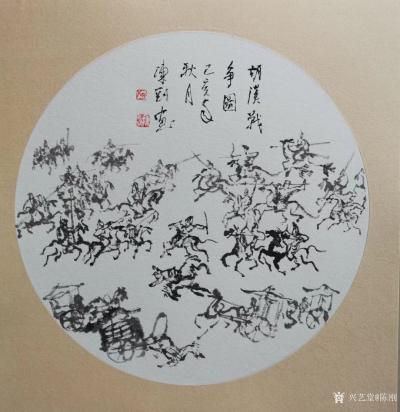 胡漢戰
争圖
己亥年
秋月
陳剛畫
兴艺堂@陈刚